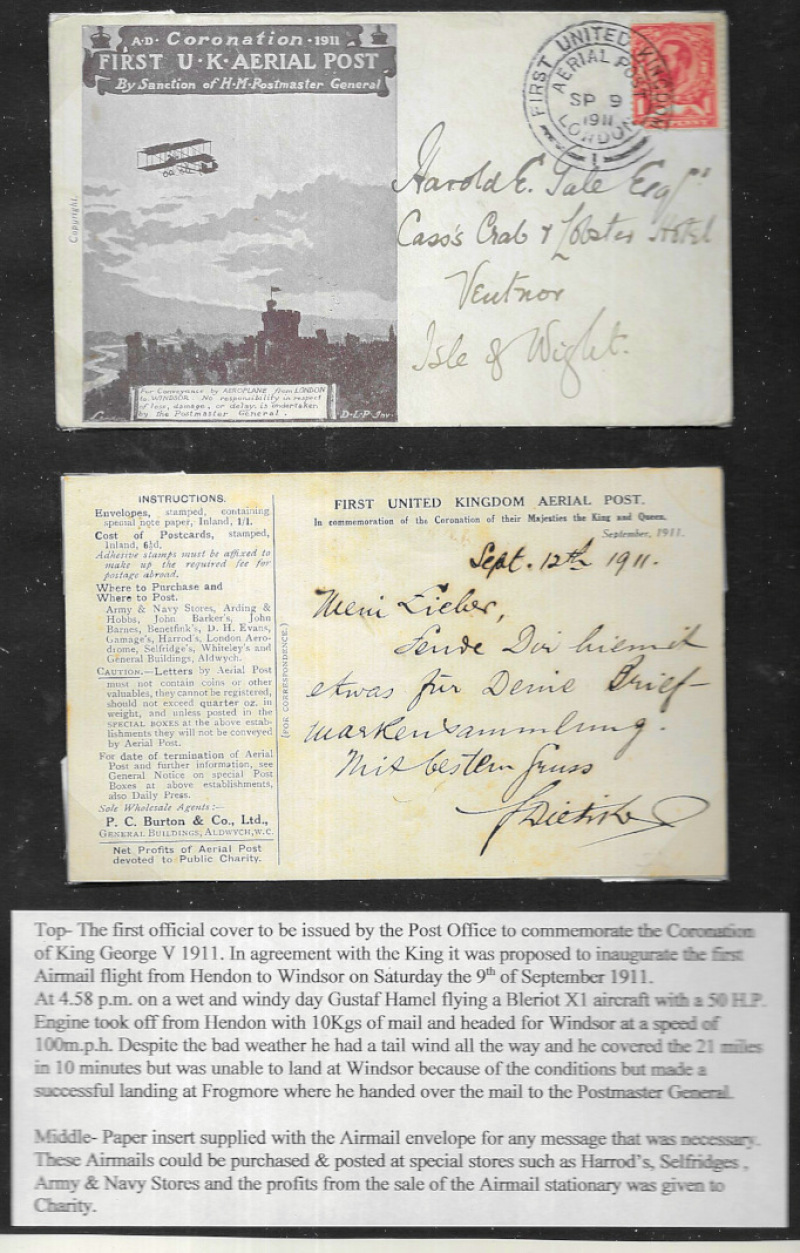 A·D· Coronation ·1911
FIRST U·K·AERIAL POST
By Sanction of H·M·Postmaster General
Copyright.
For Conveyance by AEROPLANE from LONDON
to WINDSOR. No responsibility in respect
of loss, damage, or delay, is undertaken
by the Postmaster General.
D·L·P·Inv.
FIRST UNITED KINGDOM
AERIAL POST
SP 9
1911
LONDON
1
1 PENNY 1
Harold E. Tale Esqr
Cass's Crab & Lobster Hotel
Ventnor
Isle of Wight.
INSTRUCTIONS.
Envelopes, stamped, containing
special note paper, Inland, 1/1.
Cost of Postcards, stamped,
Inland, 6½d.
Adhesive stamps must be affixed to
make up the required fee for
postage abroad.
Where to Purchase and
Where to Post.
Army & Navy Stores, Arding &
Hobbs, John Barker's, John
Barnes, Benetfink's, D. H. Evans,
Gamage's, Harrod's, London Aero-
drome, Selfridge's, Whiteley's and
General Buildings, Aldwych.
CAUTION.—Letters by Aerial Post
must not contain coins or other
valuables, they cannot be registered,
should not exceed quarter oz. in
weight, and unless posted in the
SPECIAL BOXES at the above estab-
lishments they will not be conveyed
by Aerial Post.
For date of termination of Aerial
Post and further information, see
General Notice on special Post
Boxes at above establishments,
also Daily Press.
Sole Wholesale Agents:—
P. C. Burton & Co., Ltd.,
GENERAL BUILDINGS, ALDWYCH, W.C.
Net Profits of Aerial Post
devoted to Public Charity.
(FOR CORRESPONDENCE.)
FIRST UNITED KINGDOM AERIAL POST.
In commemoration of the Coronation of their Majesties the King and Queen.
September, 1911.
Sept. 12th 1911.
Mein Lieber,
Sende Dir hiemit
etwas für Deine Brief-
markensammlung.
Mit bestem Gruss
Top- The first official cover to be issued by the Post Office to commemorate the Coronation
of King George V 1911. In agreement with the King it was proposed to inaugurate the first
Airmail flight from Hendon to Windsor on Saturday the 9th of September 1911.
At 4.58 p.m. on a wet and windy day Gustaf Hamel flying a Bleriot X1 aircraft with a 50 H.P.
Engine took off from Hendon with 10Kgs of mail and headed for Windsor at a speed of
100m.p.h. Despite the bad weather he had a tail wind all the way and he covered the 21 miles
in 10 minutes but was unable to land at Windsor because of the conditions but made a
successful landing at Frogmore where he handed over the mail to the Postmaster General.
Middle- Paper insert supplied with the Airmail envelope for any message that was necessary.
These Airmails could be purchased & posted at special stores such as Harrod's, Selfridges ,
Army & Navy Stores and the profits from the sale of the Airmail stationary was given to
Charity.